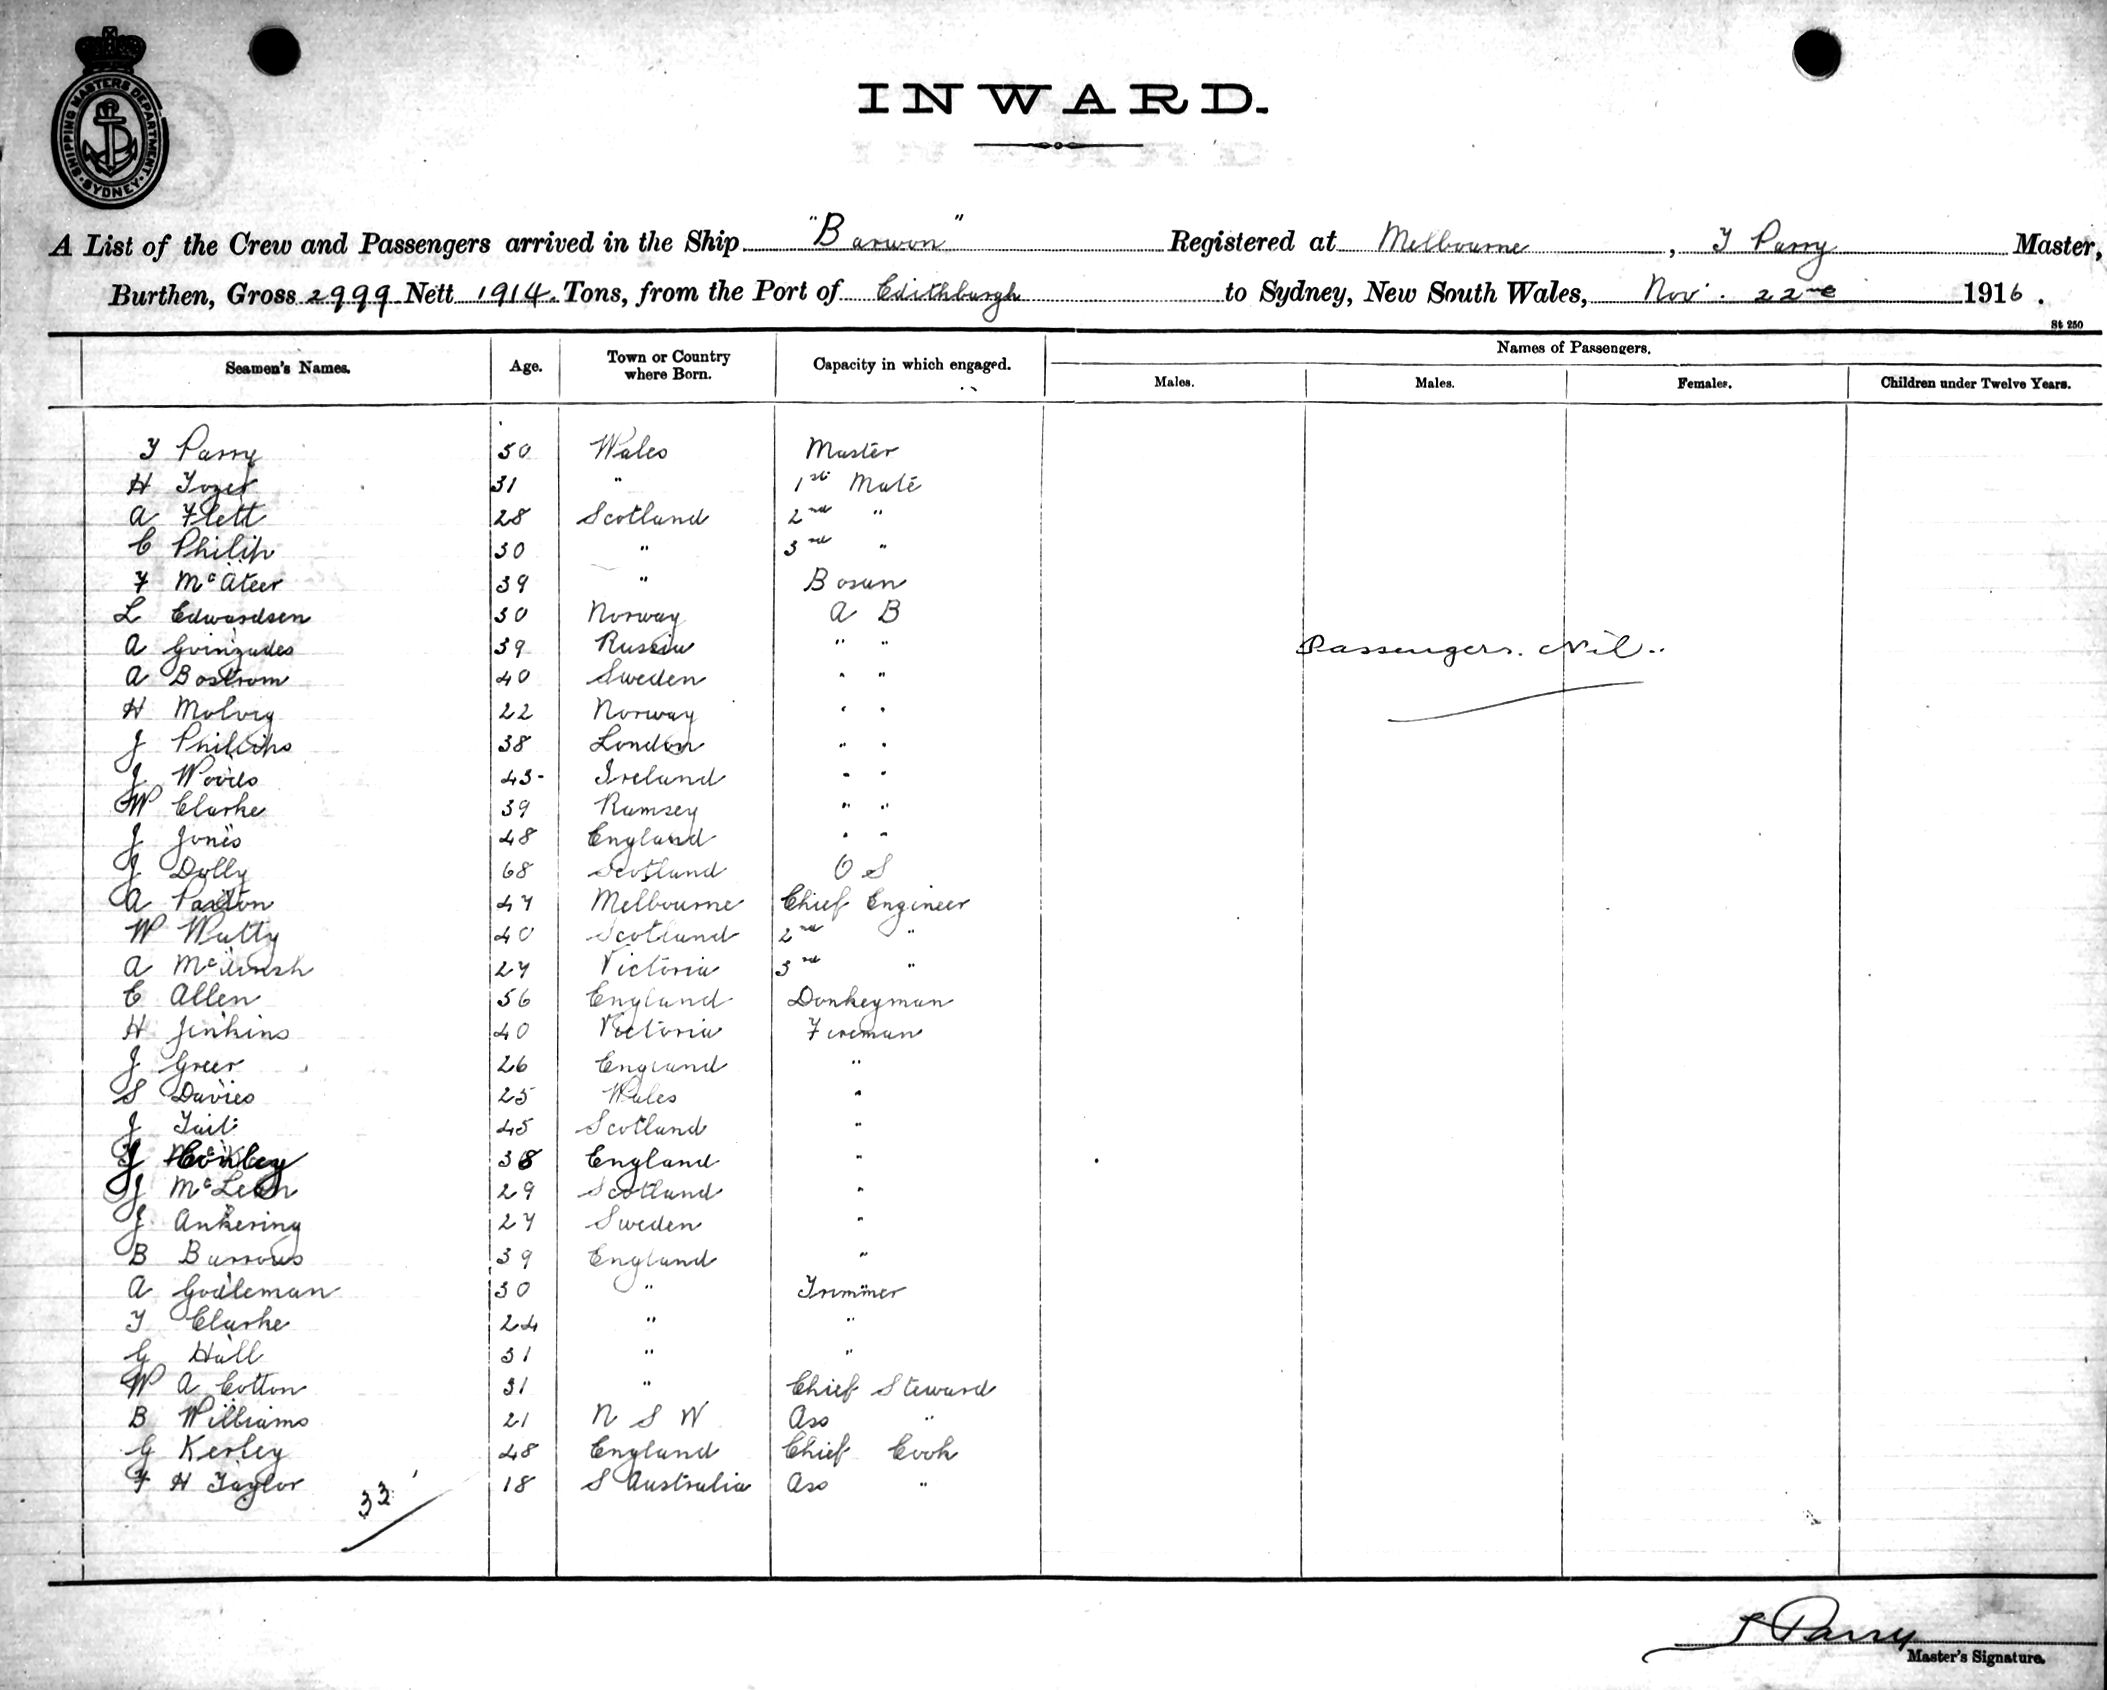 SHIPPING MASTERS DEPARTMENT
SYDNEY
INWARD.
A List of the Crew and Passengers arrived in the Ship "Barwon" Registered at Melbourne, T Parry Master,
Burthen, Gross 2999 Nett 1914 Tons, from the Port of Edithburgh to Sydney, New South Wales, Nov. 22nd 1916.
St 250
Seamen's Names. Age. Town or Country where Born. Capacity in which engaged. Names of Passengers.
Males. Males. Females. Children under Twelve Years.
T Parry 50 Wales Master
H Tozer 31 " 1st Mate
A Flett 28 Scotland 2nd "
C Philip 30 " 3rd "
F McAteer 39 " Bosun
L Edwardsen 30 Norway A B
A Gvingudes 39 Russia " "
Passengers. Nil.
A Bostrom 40 Sweden " "
H Molvig 22 Norway " "
J Phillips 38 London " "
J Woods 43 Ireland " "
W Clarke 39 Ramsey " "
J Jones 48 England " "
J Dolly 68 Scotland O S
A Paxton 47 Melbourne Chief Engineer
W Watty 40 Scotland 2nd "
A 27 Victoria 3rd "
C Allen 56 England Donkeyman
H Jenkins 40 Victoria Fireman
J Greer 26 England "
S Davies 25 Wales "
J Tait 45 Scotland "
J Conley 38 England "
J McLean 29 Scotland "
J Ankering 27 Sweden "
B Burrows 39 England "
A Godleman 30 " Trimmer
T Clarke 24 " "
G Hall 31 " "
W A Cotton 31 " Chief Steward
B Williams 21 N S W Ass "
G Kerley 48 England Chief Cook
F H Taylor 18 S Australia Ass "
33
T Parry
Master's Signature.